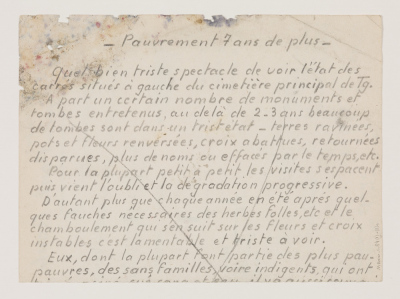 — Pauvrement 7 ans de plus —
Quel bien triste spectacle de voir l'état des
carrés situés à gauche du cimetière principal de Tg.
A part un certain nombre de monuments et
tombes entretenus, au delà de 2-3 ans beaucoup
de tombes sont dans un triste état — terres ravinées,
pots et fleurs renversées, croix abattues, retournées
disparues, plus de noms ou effacés par le temps, etc.
Pour la plupart petit à petit les visites s'espacent
puis vient l'oubli et la dégradation progressive.
D'autant plus que chaque année en été après quel-
ques fauches nécessaires des herbes folles, etc et le
chamboulement qui s'en suit sur les fleurs et croix
instables c'est lamentable et triste à voir.
Eux, dont la plupart font partie des plus pau-
pauvres, des sans familles, voire indigents, qui ont